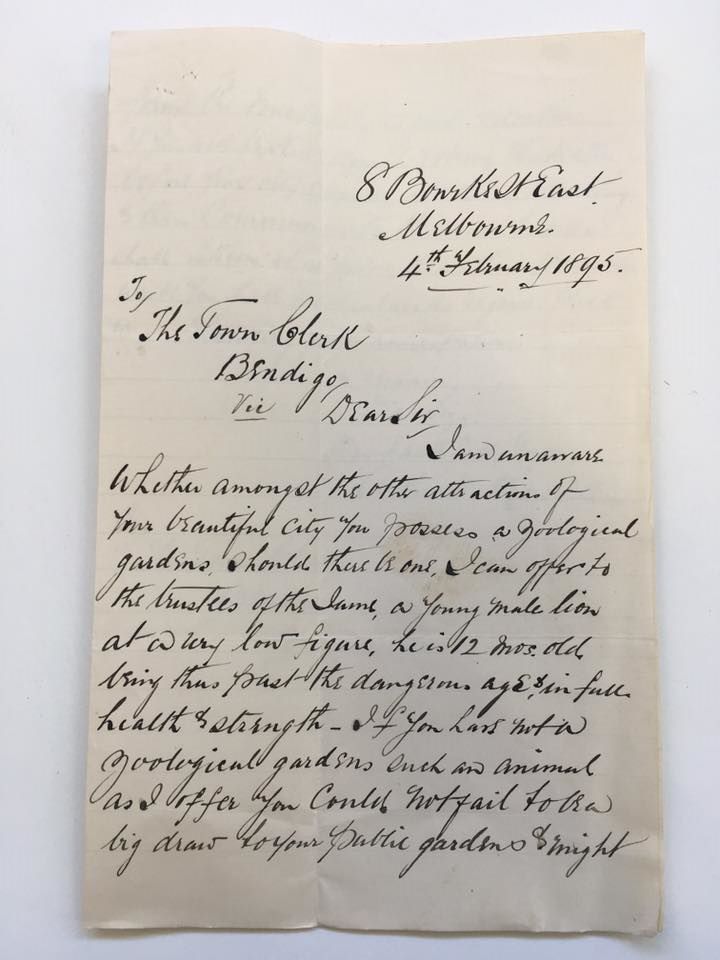 8 Bourke St East.
Melbourne.
4th February 1895.
To/
The Town Clerk
Bendigo
Vic
Dear Sir,
I am unaware
Whether amongst the other attractions of
your beautiful city you possess a zoological
gardens, should there be one, I can offer to
the trustees of the same, a young male lion
at a very low figure, he is 12 mos. old
being thus past the dangerous age, & in full
health & strength – If you have not a
zoological gardens such an animal
as I offer you could not fail to be a
big draw to your public gardens & might